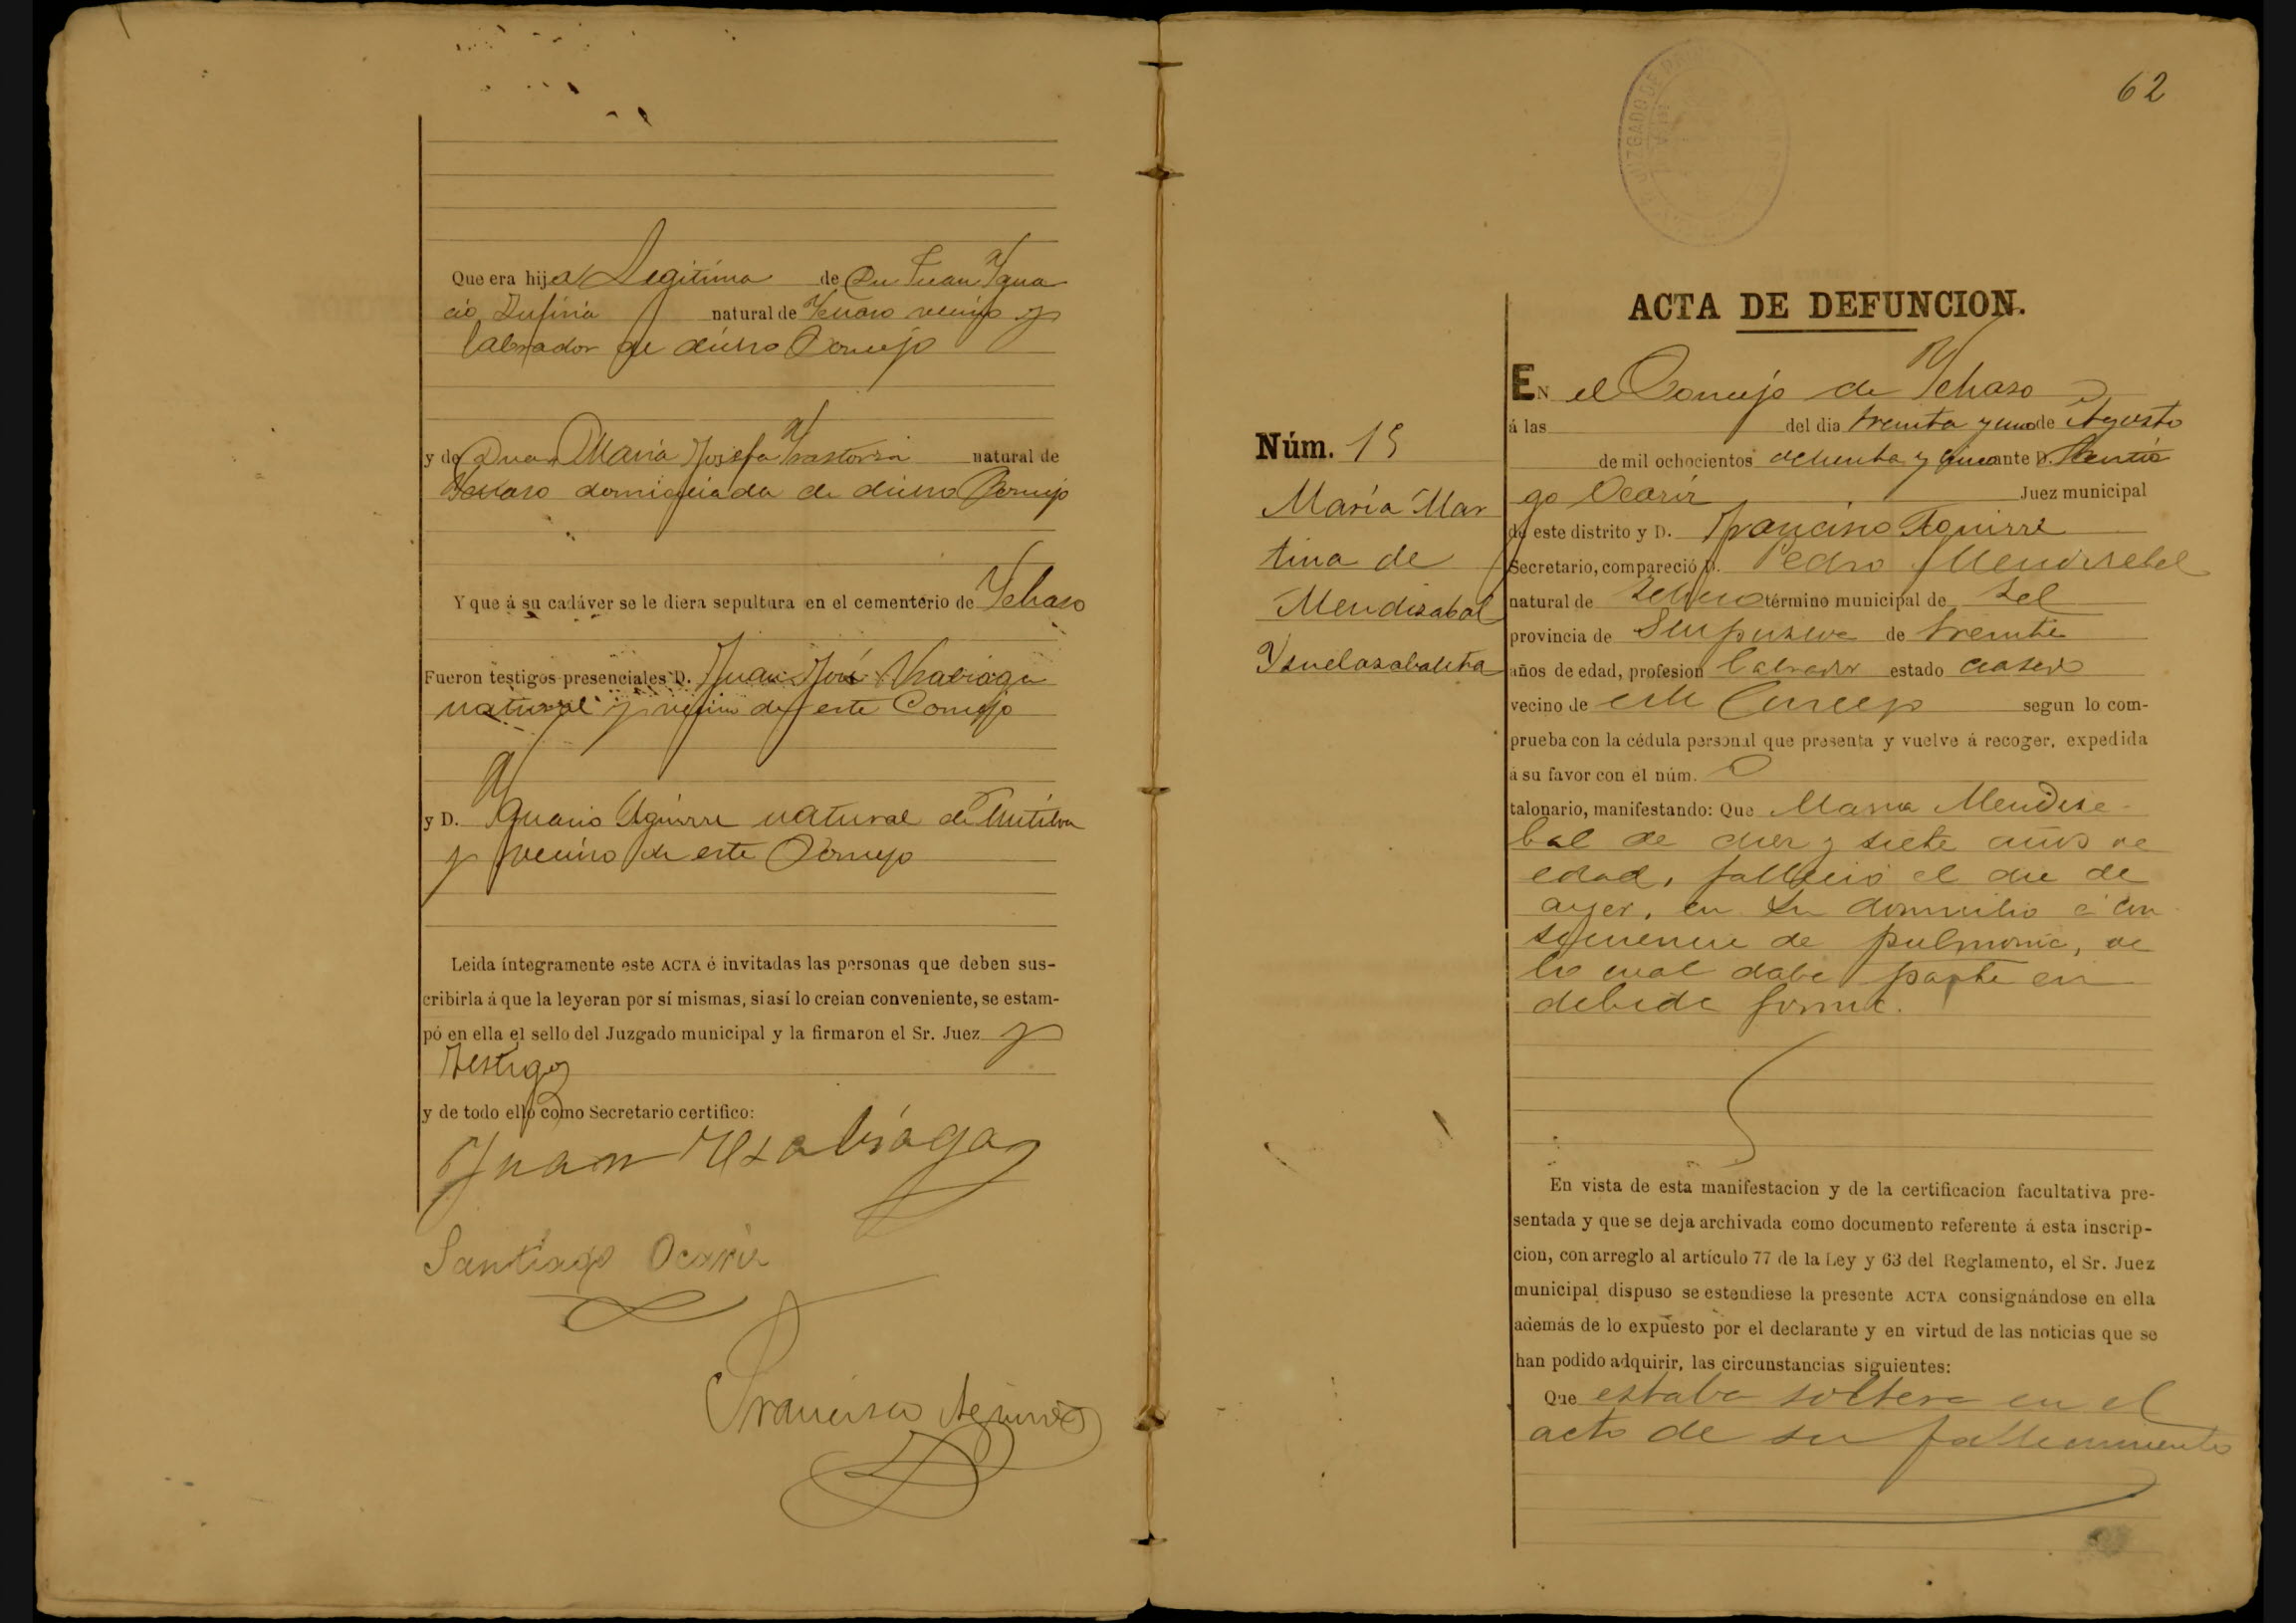 Que era hija Legitima de Dn Juan Ygna
cio natural de Ychaso vecino y
labrador de dicho Concejo
y de Dña María Josefa Yrastorza natural de
Ychaso domiciliada de dicho Concejo
Y que á su cadáver se le diera sepultura en el cementerio de Ychaso
Fueron testigos presenciales D. Juan José Usabiaga
natural y vecino de este Concejo
y D. Ygnacio Aguirre natural de Mutiloa
y vecino de este Concejo
Leida íntegramente este ACTA é invitadas las personas que deben sus-
cribirla á que la leyeran por sí mismas, si así lo creian conveniente, se estam-
pó en ella el sello del Juzgado municipal y la firmaron el Sr. Juez y
Testigos
y de todo ello como Secretario certifico:
Juan Usabiaga
Santiago Ocariz
Francisco Aguirre
62
JUZGADO DE
ACTA DE DEFUNCION.
Núm. 15
María Mar
tina de
Mendizabal
EN el Concejo de Ychaso
á las del dia treinta y uno de Agosto
de mil ochocientos ochenta y cinco ante D. Santia
go Ocariz Juez municipal
de este distrito y D. Francisco Aguirre
Secretario, compareció D. Pedro Mendizabal
natural de término municipal de id
provincia de Guipuzcoa de treinta
años de edad, profesion labrador estado casado
vecino de este Concejo segun lo com-
prueba con la cédula personal que presenta y vuelve á recoger, expedida
á su favor con el núm.
talonario, manifestando: Que Maria Mendiza-
bal de diez y siete años de
edad, falleció el dia de
ayer, en su domicilio á con
secuencia de pulmonia, de
lo cual daba parte en
debida forma.
En vista de esta manifestacion y de la certificacion facultativa pre-
sentada y que se deja archivada como documento referente á esta inscrip-
cion, con arreglo al artículo 77 de la Ley y 63 del Reglamento, el Sr. Juez
municipal dispuso se estendiese la presente ACTA consignándose en ella
además de lo expuesto por el declarante y en virtud de las noticias que se
han podido adquirir, las circunstancias siguientes:
Que estaba soltera en el
acto de su fallecimiento